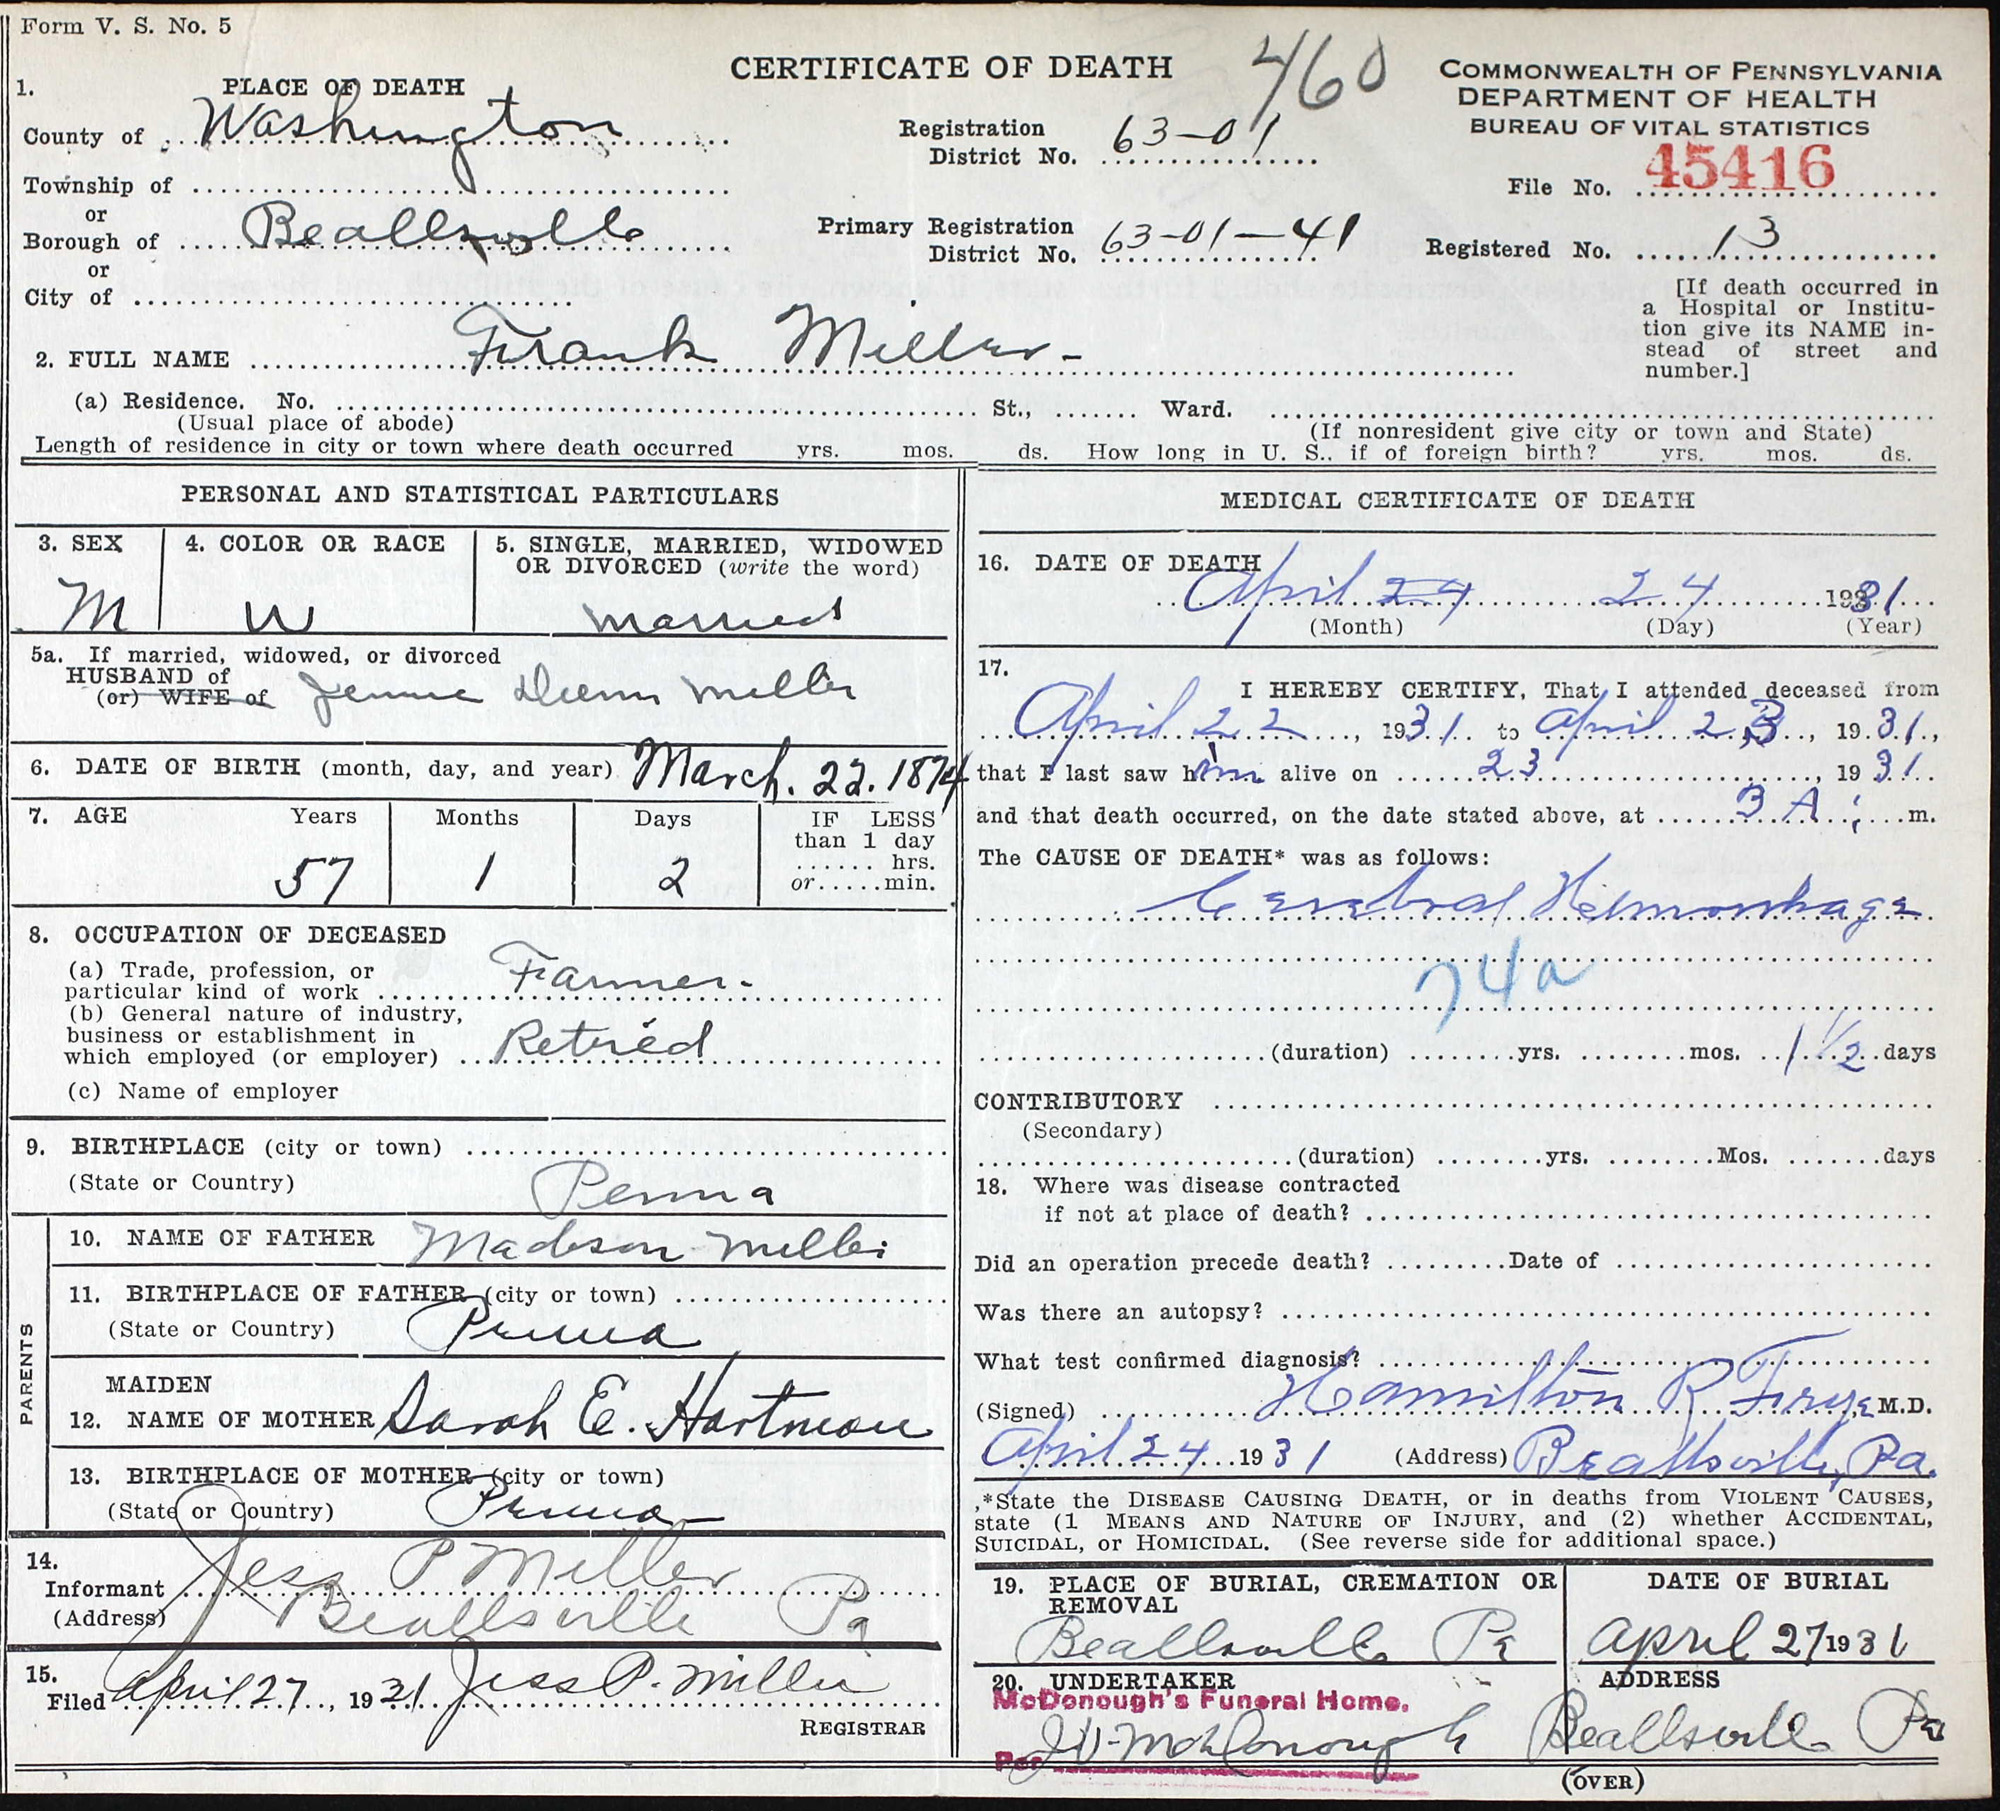 Form V. S. No. 5
CERTIFICATE OF DEATH
460
COMMONWEALTH OF PENNSYLVANIA
DEPARTMENT OF HEALTH
BUREAU OF VITAL STATISTICS
1. PLACE OF DEATH
County of Washington
Registration District No. 63-01
File No. 45416
Township of
or
Borough of Beallsville
Primary Registration District No. 63-01-41
Registered No. 13
or
City of
[If death occurred in
a Hospital or Institu-
tion give its NAME in-
stead of street and
number.]
2. FULL NAME Frank Miller
(a) Residence. No. St., Ward.
(Usual place of abode) (If nonresident give city or town and State)
Length of residence in city or town where death occurred yrs. mos. ds. How long in U. S., if of foreign birth? yrs. mos. ds.
PERSONAL AND STATISTICAL PARTICULARS
3. SEX
M
4. COLOR OR RACE
W
5. SINGLE, MARRIED, WIDOWED
OR DIVORCED (write the word)
Married
5a. If married, widowed, or divorced
HUSBAND of
(or) WIFE of Jennie Miller
6. DATE OF BIRTH (month, day, and year) March. 22. 1874
7. AGE Years Months Days IF LESS
than 1 day
hrs.
or min.
57 1 2
8. OCCUPATION OF DECEASED
(a) Trade, profession, or
particular kind of work Farmer.
(b) General nature of industry,
business or establishment in
which employed (or employer) Retired
(c) Name of employer
9. BIRTHPLACE (city or town)
(State or Country) Penna
PARENTS
10. NAME OF FATHER Madison Miller
11. BIRTHPLACE OF FATHER (city or town)
(State or Country) Penna
MAIDEN
12. NAME OF MOTHER Sarah E. Hartman
13. BIRTHPLACE OF MOTHER (city or town)
(State or Country) Penna
14.
Informant Jess P Miller
(Address) Beallsville Pa
15.
Filed April 27, 1931 Jess P. Miller
REGISTRAR
MEDICAL CERTIFICATE OF DEATH
16. DATE OF DEATH
April 24 24 1931
(Month) (Day) (Year)
17.
I HEREBY CERTIFY, That I attended deceased from
April 22, 1931 to April 23, 1931,
that I last saw him alive on 23, 1931
and that death occurred, on the date stated above, at 3 A. m.
The CAUSE OF DEATH* was as follows:
Cerebral Hemorrhage
74a
(duration) yrs. mos. 1 1/2 days
CONTRIBUTORY
(Secondary)
(duration) yrs. Mos. days
18. Where was disease contracted
if not at place of death?
Did an operation precede death? Date of
Was there an autopsy?
What test confirmed diagnosis?
(Signed) Hamilton R Frye, M.D.
April 24 1931 (Address) Beallsville, Pa.
*State the DISEASE CAUSING DEATH, or in deaths from VIOLENT CAUSES,
state (1 MEANS AND NATURE OF INJURY, and (2) whether ACCIDENTAL,
SUICIDAL, or HOMICIDAL. (See reverse side for additional space.)
19. PLACE OF BURIAL, CREMATION OR
REMOVAL
Beallsville Pa
DATE OF BURIAL
April 27 1931
20. UNDERTAKER
McDonough's Funeral Home.
Per J V McDonough
ADDRESS
Beallsville Pa
(OVER)